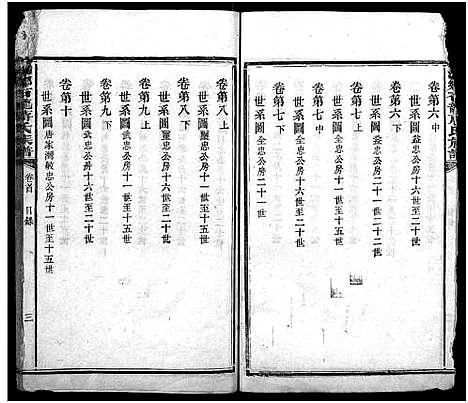 卷第六中
世系圖益忠公房十六世至二十世
卷第六下
世系圖益忠公房二十一世至二十二世
卷第七中
世系圖全忠公房十六世至二十世
卷第七下
世系圖全忠公房二十一世
卷第八上
世系圖璽忠公房十一世至十五世
卷第八下
世系圖璽忠公房十六世至二十世
卷第九上
世系圖武忠公房十一世至十五世
卷第九下
世系圖武忠公房十六世至二十世
卷第十
世系圖唐家灣敏忠公房十一世至十五世
氏族譜
卷首
目錄
三